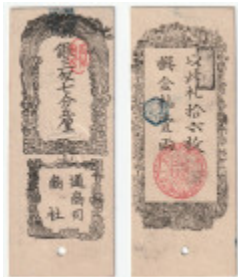 銀三匁七分五厘
通商司
商社
以此札拾六枚
換金札壹兩